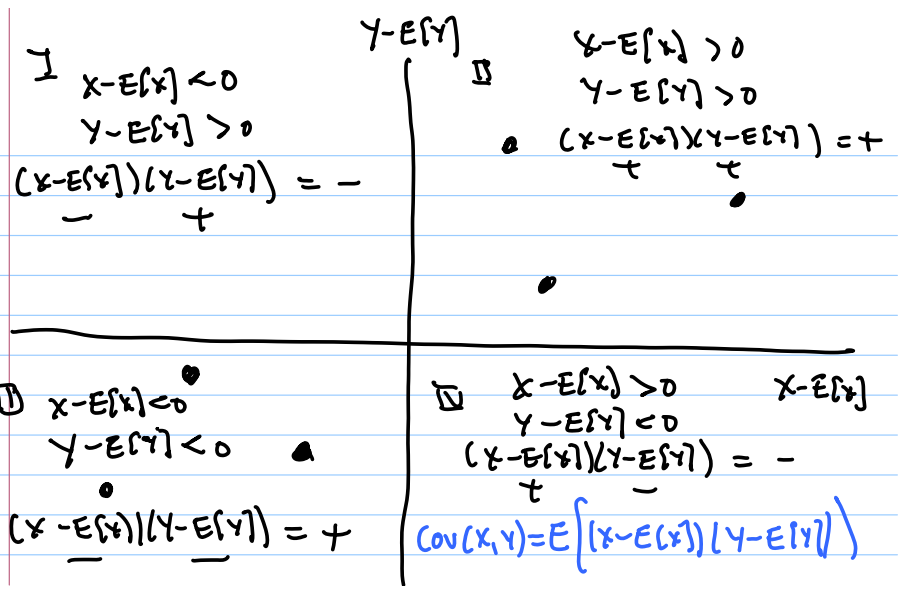 Y-E[Y]
I
X-E[X] < 0
Y-E[Y] > 0
(X-E[X])(Y-E[Y]) = -
- +
II
X-E[X] > 0
Y-E[Y] > 0
(X-E[X])(Y-E[Y]) = +
+ +
X-E[X] < 0
Y-E[Y] < 0
(X-E[X])(Y-E[Y]) = +
- -
IV
X-E[X] > 0
X-E[X]
Y-E[Y] < 0
(X-E[X])(Y-E[Y]) = -
+ -
Cov(X,Y)=E[(X-E[X])(Y-E[Y])]